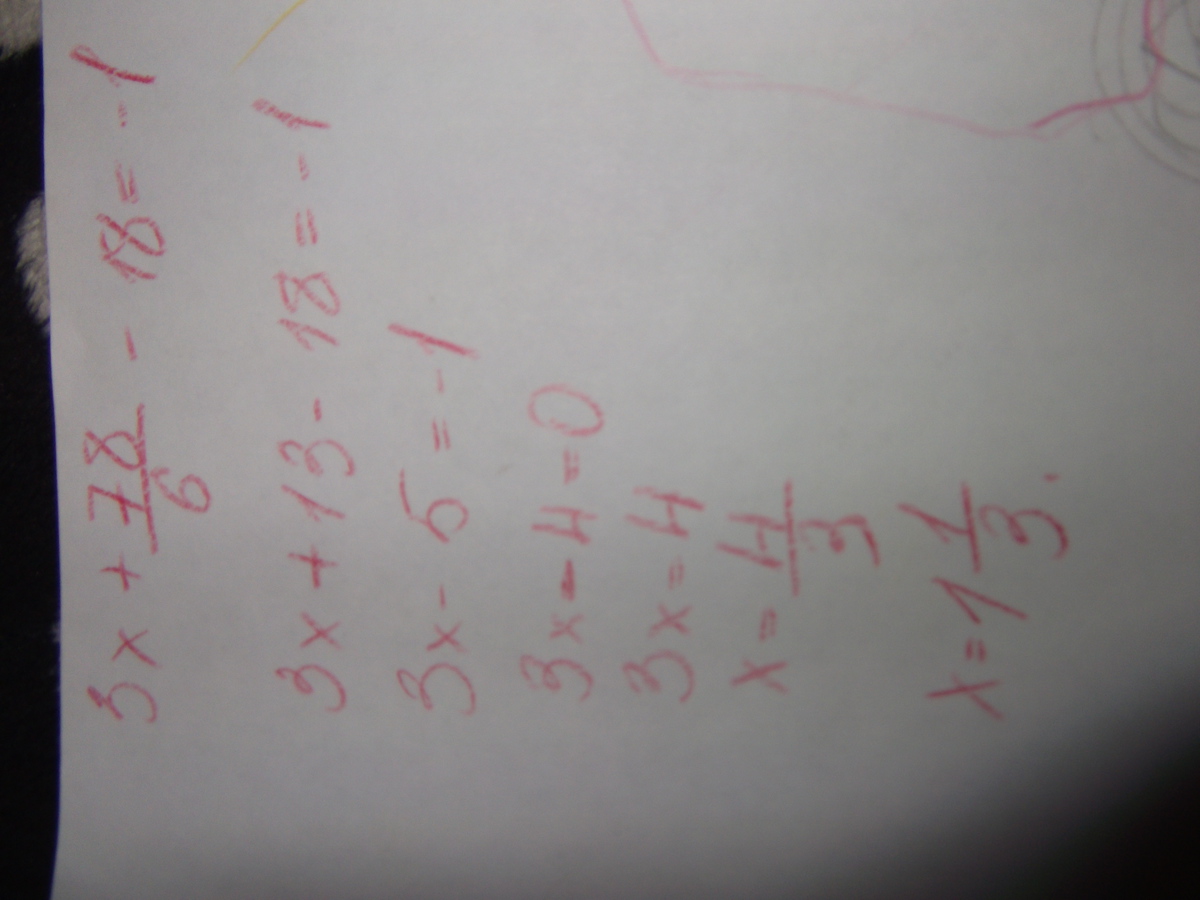 3x + 78/6 - 18 = -1
3x + 13 - 18 = -1
3x - 5 = -1
3x - 4 = 0
3x = 4
x = 4/3
x = 1 1/3.